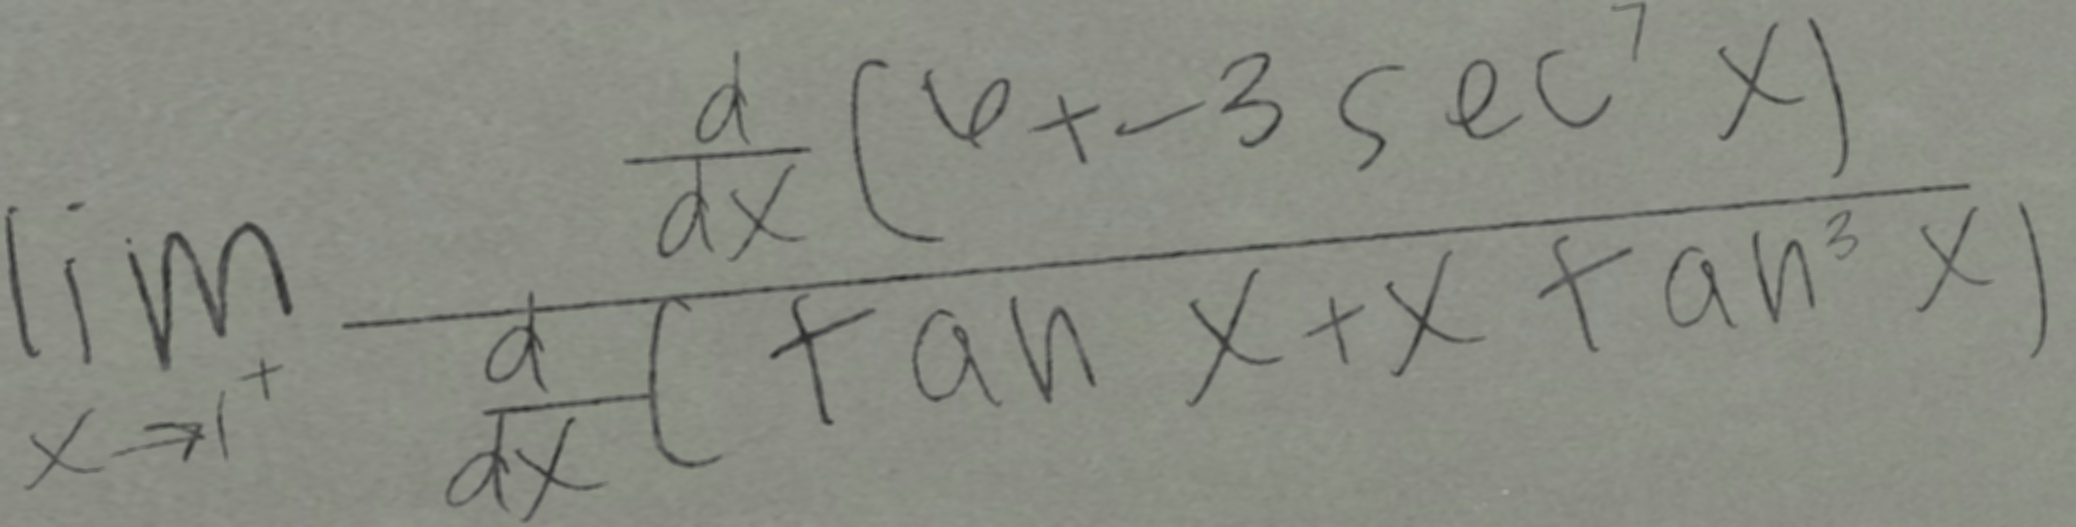 \lim_{x \to 1^+} \frac{\frac{d}{dx}(6+-3 \sec^7 x)}{\frac{d}{dx}(\tan x+x \tan^3 x)}